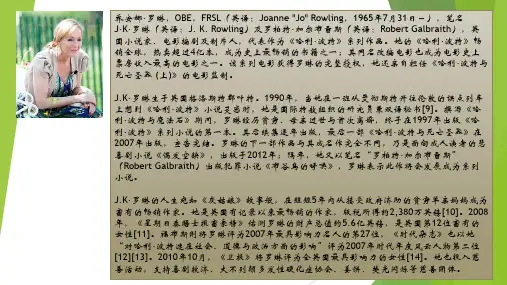 乔安娜·罗琳，OBE，FRSL（英语：Joanne "Jo" Rowling，1965年7月31日－），笔名
J·K·罗琳（英语：J. K. Rowling）及罗柏特·加尔布雷斯（英语：Robert Galbraith），英
国小说家、电影编剧及制片人，代表作为《哈利·波特》系列作品。她的《哈利·波特》畅
销全球，热卖超过4亿本，成为史上最畅销的书籍之一；其同名改编电影也成为电影史上
票房收入最高的电影之一。该系列电影获得罗琳的完整授权，她还亲自担任《哈利·波特与
死亡圣器(上)》的电影监制。
J.K·罗琳生于英国格洛斯特郡叶特。1990年，当她在一班从曼彻斯特开往伦敦的误点列车
上想到《哈利·波特》小说灵感时，她是国际特赦组织的研究员兼双语秘书[9]。撰写《哈
利·波特与魔法石》期间，罗琳经历贫穷、母亲过世与首次离婚，终于在1997年出版《哈
利·波特》系列小说的第一本。其后续集逐年出版，最后一部《哈利·波特与死亡圣器》在
2007年出版，宣告完结。罗琳的下一部作品与其成名作完全不同，乃是面向成人读者的悲
喜剧小说《偶发空缺》，出版于2012年；隔年，他又以笔名“罗柏特·加尔布雷斯”
（Robert Galbraith）出版犯罪小说《布谷鸟的呼唤》，罗琳表示此作将会发展成为系列
小说。
J.K·罗琳的人生宛如《灰姑娘》故事般，在短短5年内从接受政府济助的贫穷单亲妈妈成为
富有的畅销作家。她是英国有纪录以来最畅销的作家，版税所得约2,380万英镑[10]。2008
年，《星期日泰晤士报富豪榜》估测罗琳的财产总值约5.6亿英镑，是英国第12位富有的
女性[11]。福布斯则将罗琳评为2007年最具影响力名人的第27位，《时代杂志》也以她
“对哈利·波特迷在社会、道德与政治方面的影响”评为2007年时代年度风云人物第二位
[12][13]。2010年10月，《卫报》将罗琳评为全英国最具影响力的女性[14]。她也投入慈
善活动，支持喜剧救济、大不列颠多发性硬化症协会、姜饼、荧光闪烁等慈善团体。